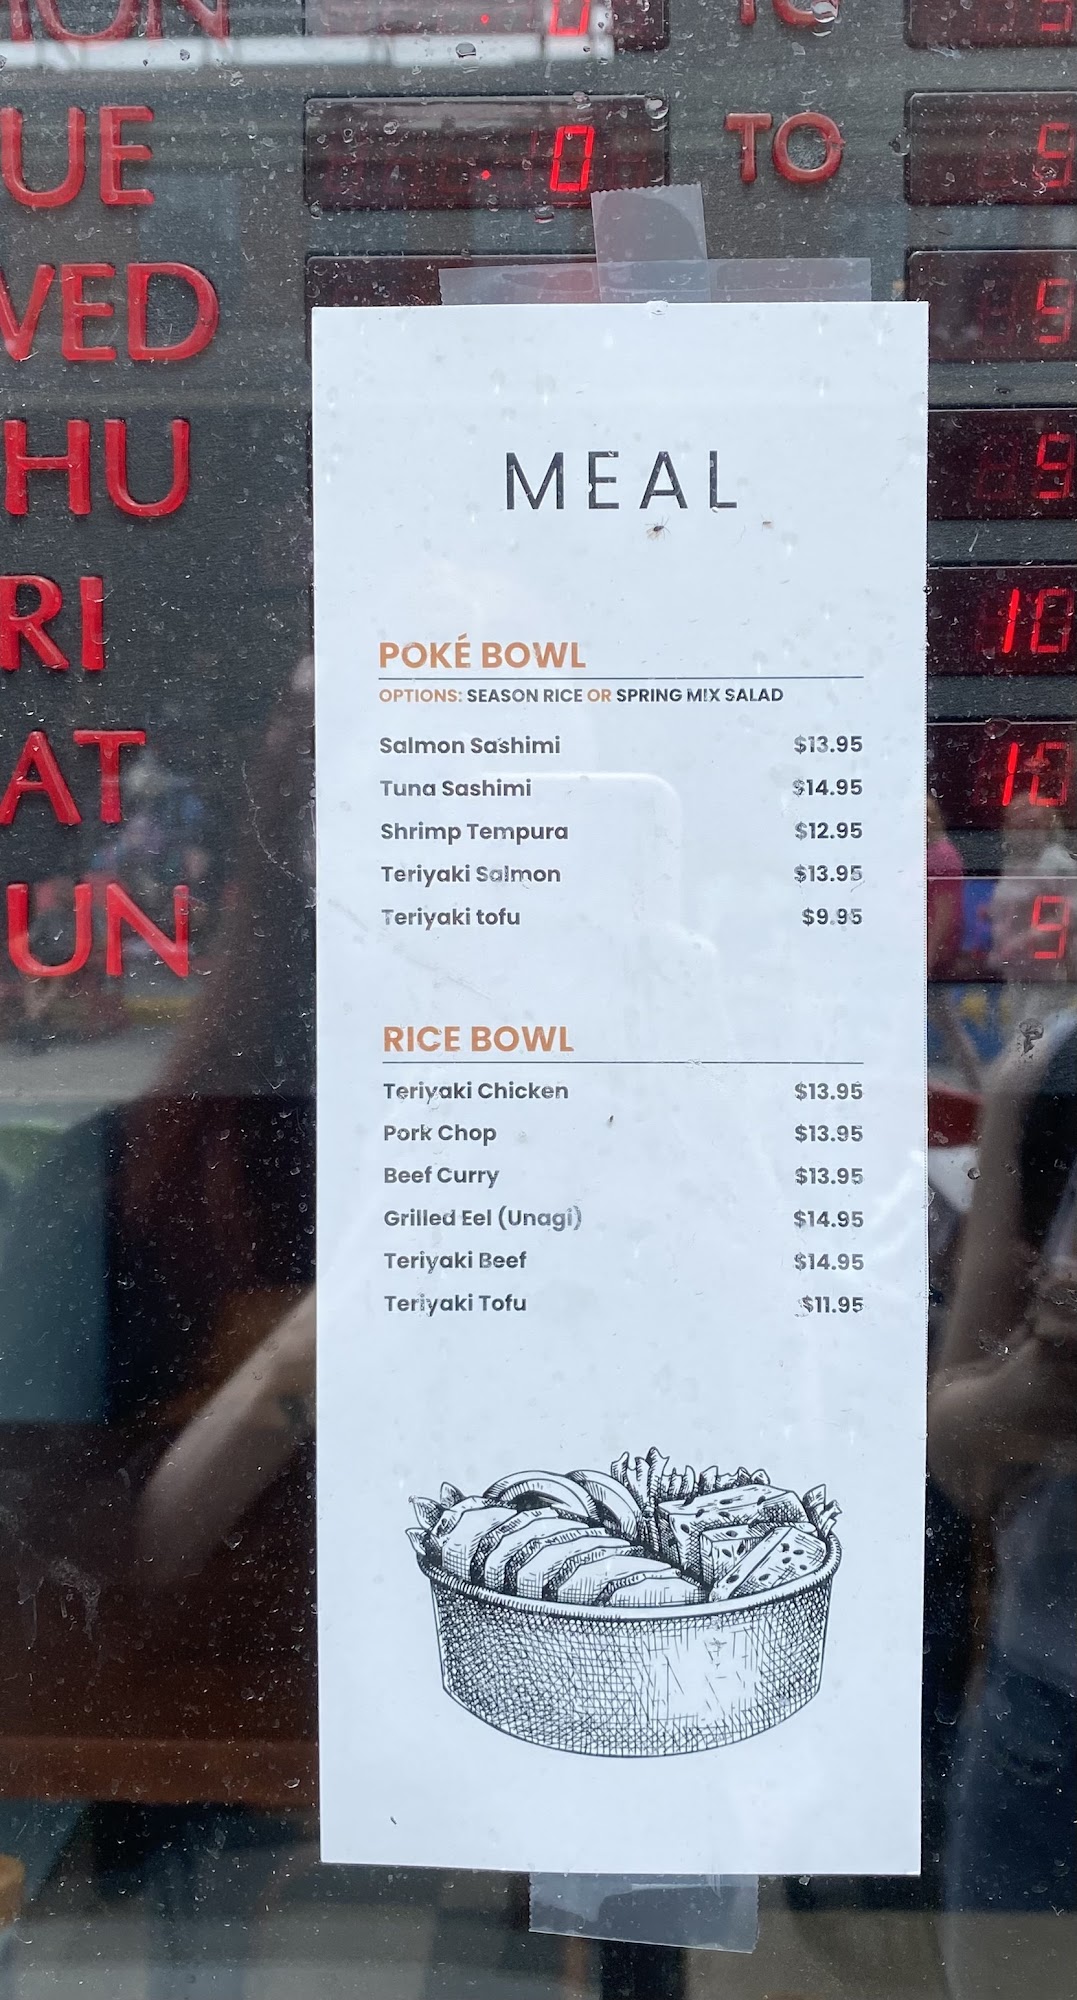 0 TO
UE 0 TO 9
VED 9
HU 9
RI 10
AT 10
UN 9
MEAL
POKÉ BOWL
OPTIONS: SEASON RICE OR SPRING MIX SALAD
Salmon Sashimi $13.95
Tuna Sashimi $14.95
Shrimp Tempura $12.95
Teriyaki Salmon $13.95
Teriyaki tofu $9.95
RICE BOWL
Teriyaki Chicken $13.95
Pork Chop $13.95
Beef Curry $13.95
Grilled Eel (Unagi) $14.95
Teriyaki Beef $14.95
Teriyaki Tofu $11.95